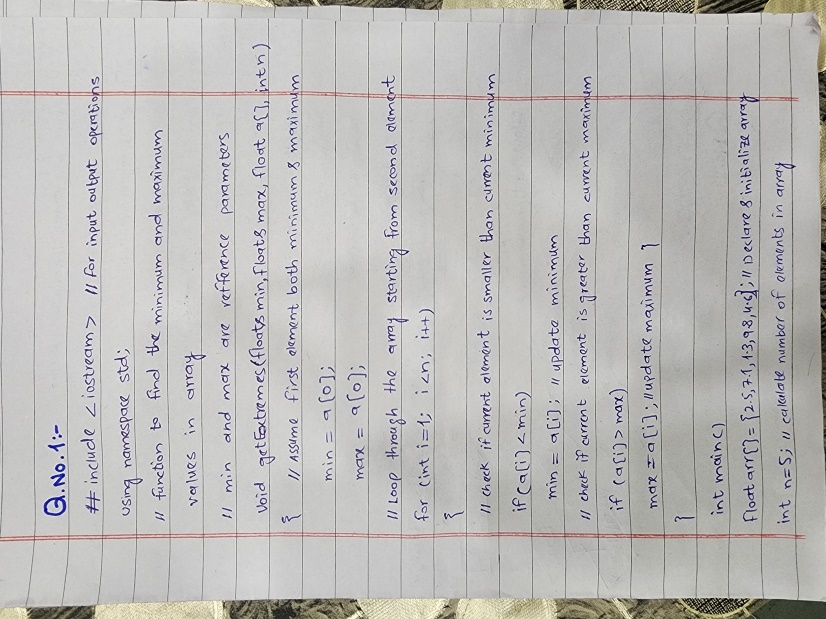 Q.No.1:-
# include <iostream> // for input output operations
using namespace std;
// function to find the minimum and maximum
values in array
// min and max are refference parameters
void getExtremes(float& min, float& max, float a[], int n)
{ // Assume first element both minimum & maximum
min = a[0];
max = a[0];
// Loop through the array starting from second element
for (int i=1; i<n; i++)
{
// check if current element is smaller than current minimum
if(a[i]<min)
min = a[i]; // update minimum
// check if current element is greater than current maximum
if (a[i]>max)
max = a[i]; //update maximum }
}
int main()
float arr[] = {2.5,7.1,1.3,9.8,4.6}; // Declare & initialize array
int n=5; // calculate number of elements in array